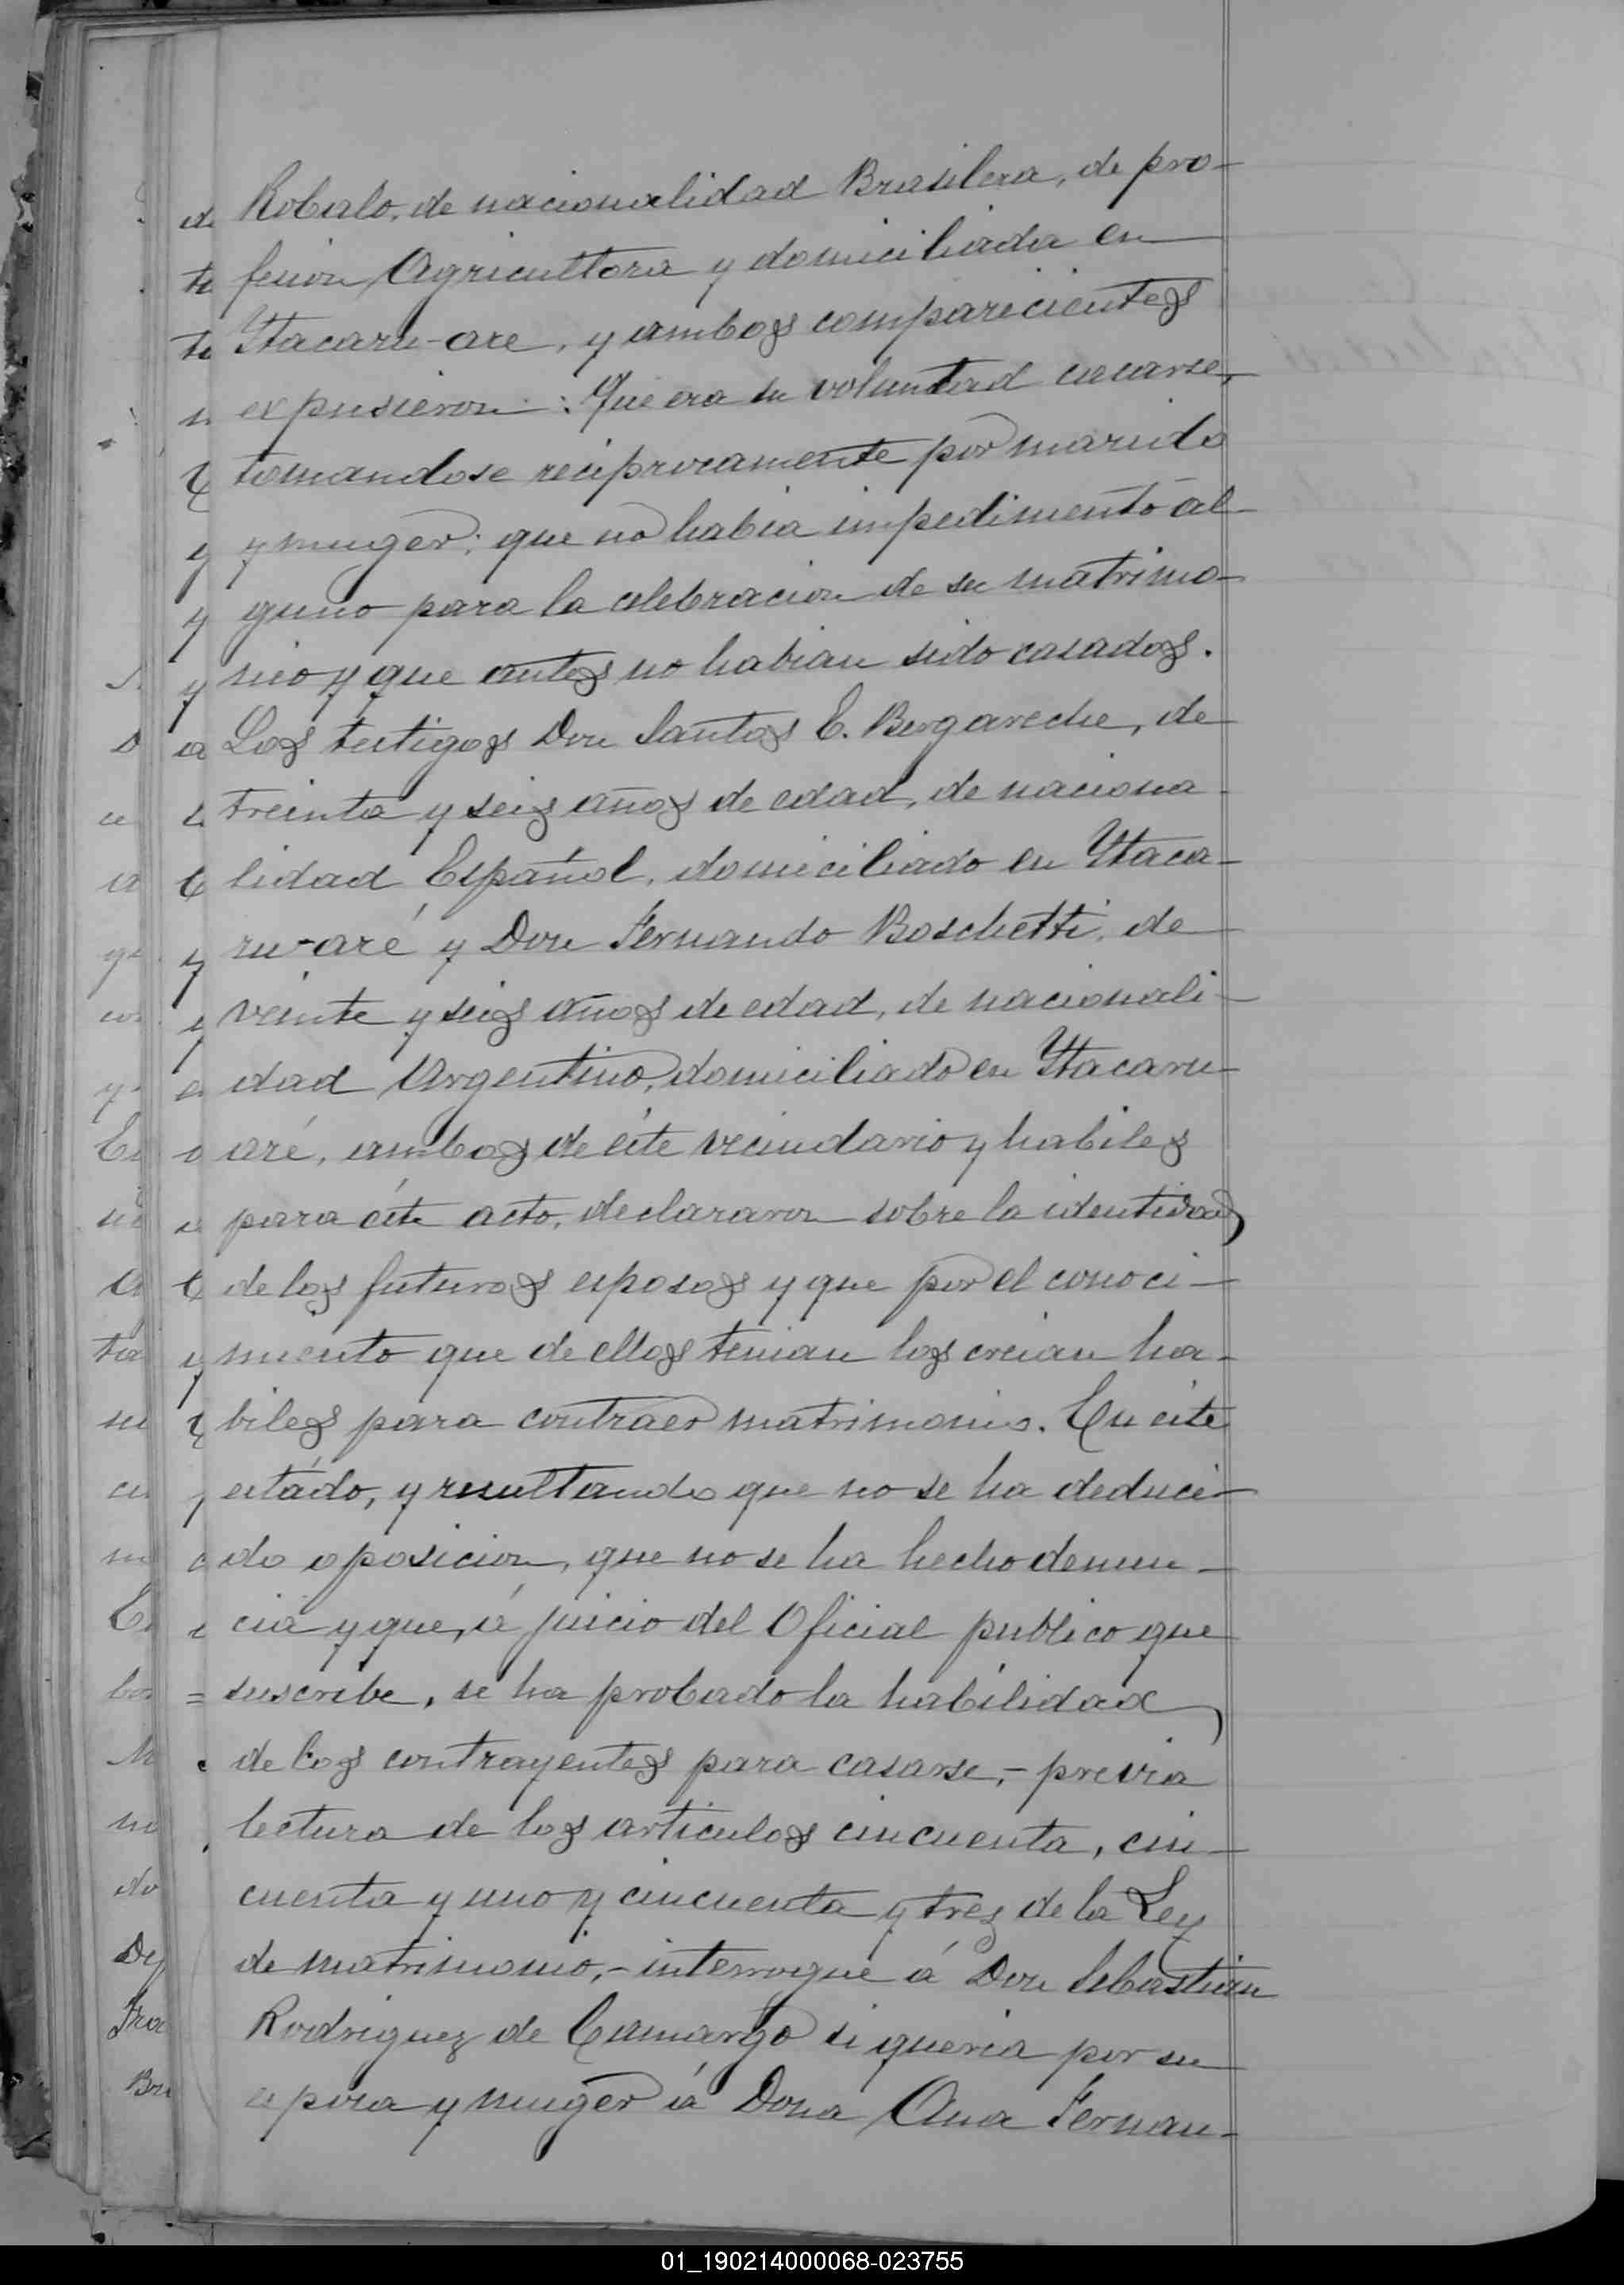 Robalo, de nacionalidad Brasilera, de pro-
fesion Agricultora y domiciliada en
Ytacaru-are, y ambos comparecientes
expusieron: Que era su voluntad casarse,
tomandose reciprocamente por marido
y muger; que no habia impedimento al-
guno para la celebracion de su matrimo-
nio y que antes no habian sido casados.
Los testigos Don Santos E. Bergareche, de
treinta y seis años de edad, de naciona-
lidad Español, domiciliado en Ytaca-
ru-aré y Don Fernando Boschetti, de
veinte y seis años de edad, de nacionali-
dad Argentino, domiciliado en Ytacaru-
aré, ambos de éste vecindario y habiles
para éste acto, declararon sobre la identidad
de los futuros esposos y que por el conoci-
miento que de ellos tenian los creian ha-
biles para contraer matrimonio. En éste
estado, y resultando que no se ha deduci-
do oposicion, que no se ha hecho denun-
cia y que, á juicio del Oficial publico que
suscribe, se ha probado la habilidad
de los contrayentes para casarse,- previa
lectura de los articulos cincuenta, cin-
cuenta y uno y cincuenta y tres de la Ley
de matrimonio,- interrogué á Don Sebastian
Rodriguez de Camargo si queria por su
esposa y muger á Dona Ana Fernan-
01_190214000068-023755